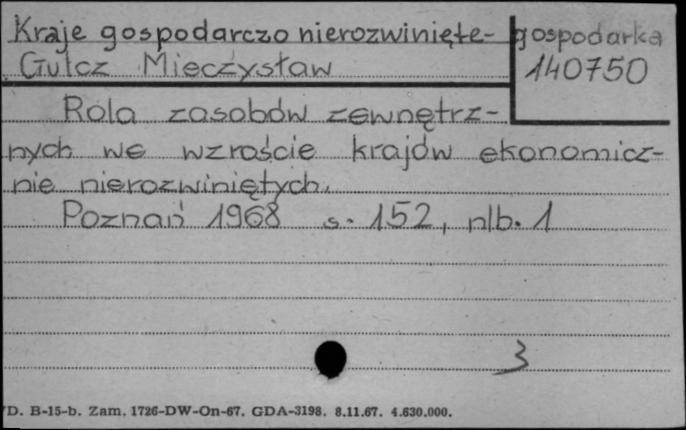 Kraje gospodarczo nierozwinięte- gospodarka
Gulcz Mieczysław 140750
Rola zasobów zewnętrz-
nych we wzroście krajów ekonomicz-
nie nierozwiniętych.
Poznań 1968 s. 152, nlb. 1
3
D. B-15-b. Zam. 1726-DW-On-67. GDA-3198. 8.11.67. 4.630.000.